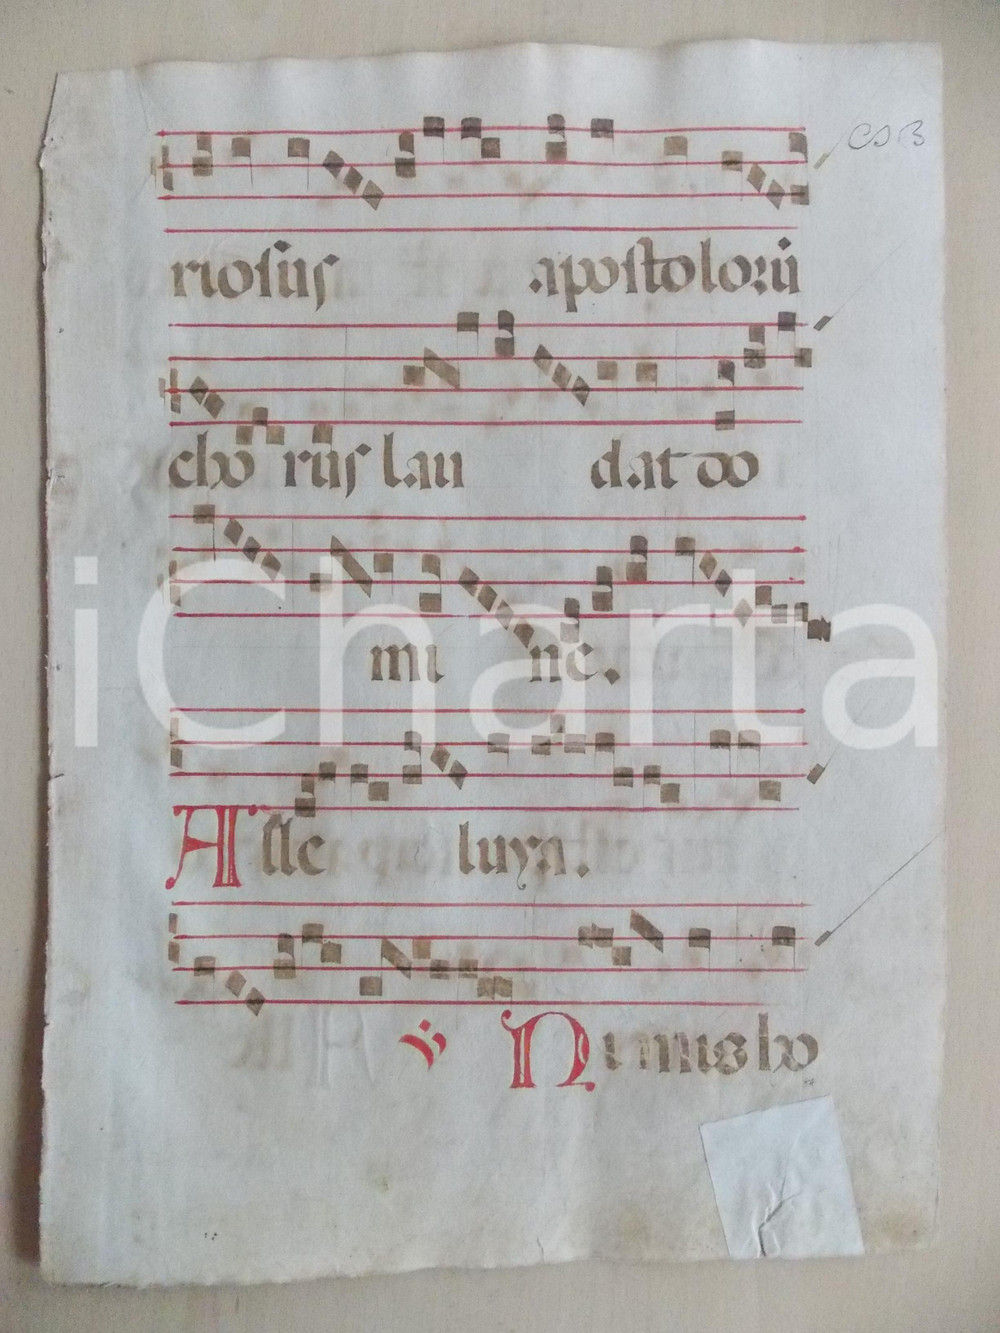 riosus apostolorū
cho rus lau dat do
mi ne.
Alle luya.
℣ Nimis ho
iCharta